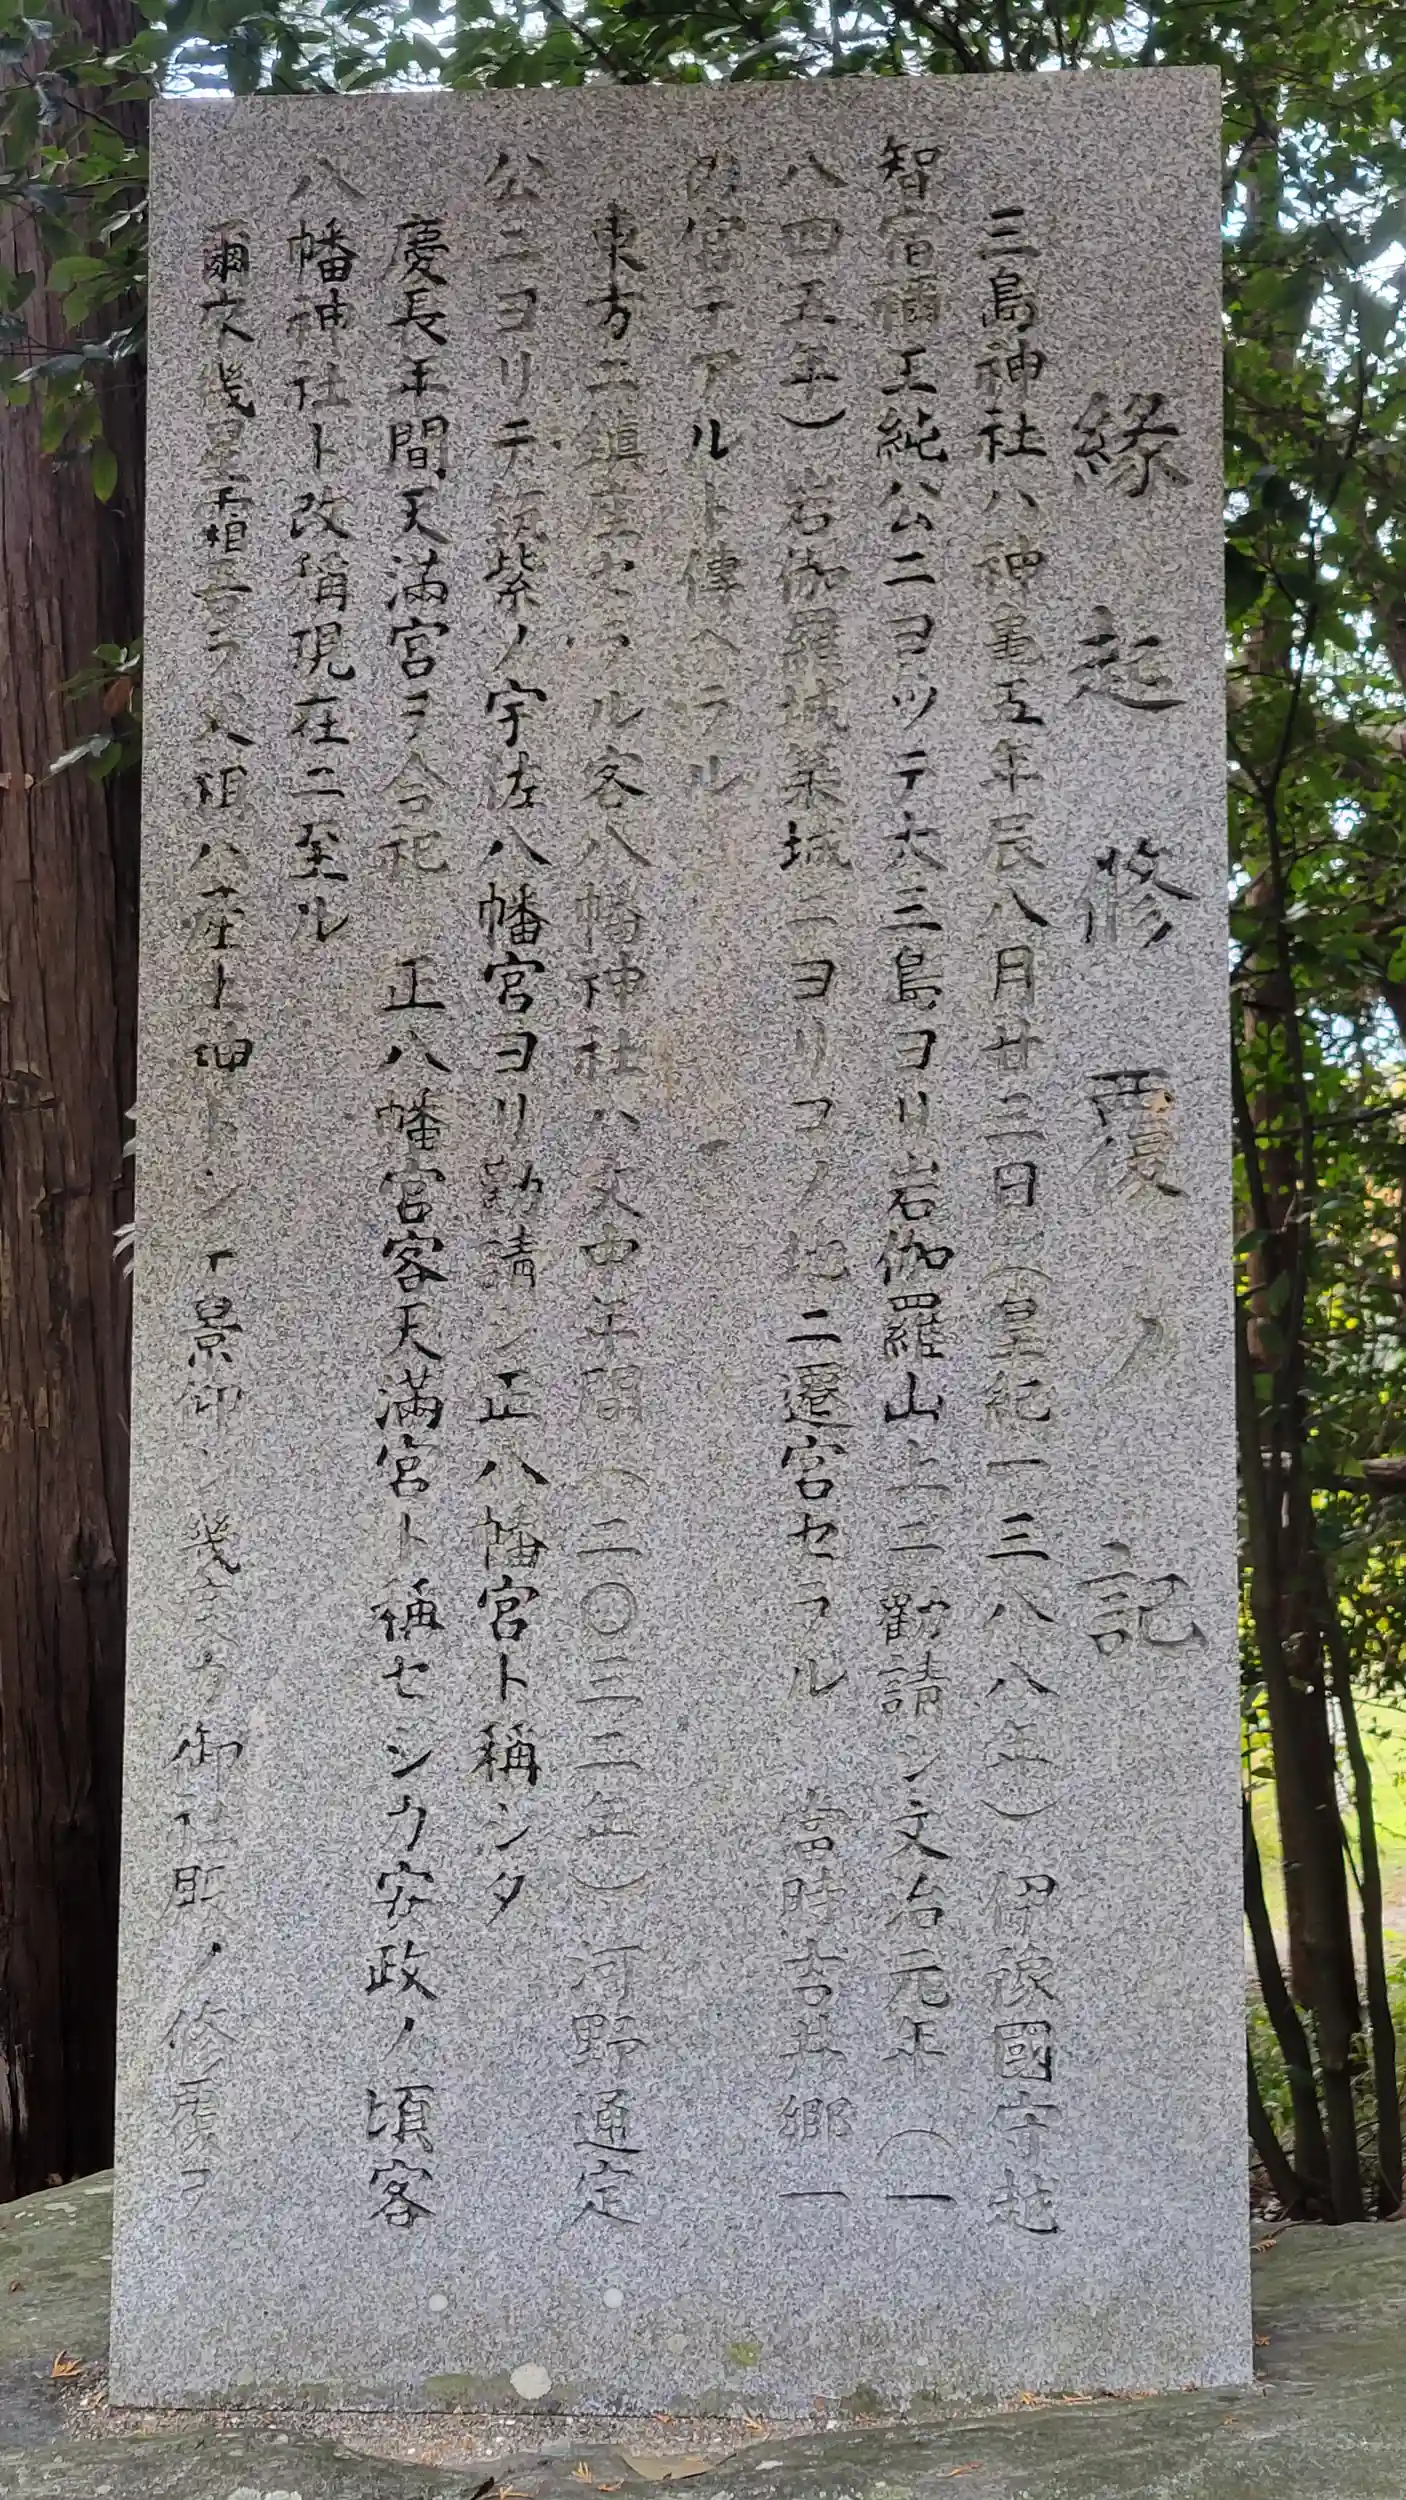 縁起修覆ノ記
三島神社ハ神亀五年辰八月廿三日(皇紀一三八八年)伊豫國守越
智宿禰玉純公ニヨツテ大三島ヨリ岩伽羅山上ニ勸請シ文治元年(一
八四五年)岩伽羅城築城ニヨリコノ地ニ遷宮セラル 當時吉井郷一
ノ宮テアルト傳ヘラル
東方ニ鎮座セラル客八幡神社ハ文中年間(二〇三二年)河野通定
公ニヨリテ筑紫ノ宇佐八幡宮ヨリ勸請シ正八幡宮ト稱シタ
慶長年間天満宮ヲ合祀 正八幡宮客天満宮ト稱セシカ安政ノ頃客
八幡神社ト改稱現在ニ至ル
爾来幾星霜吾ラ父祖ハ産土神トシテ景仰シ幾度カ御社殿ノ修覆ヲ